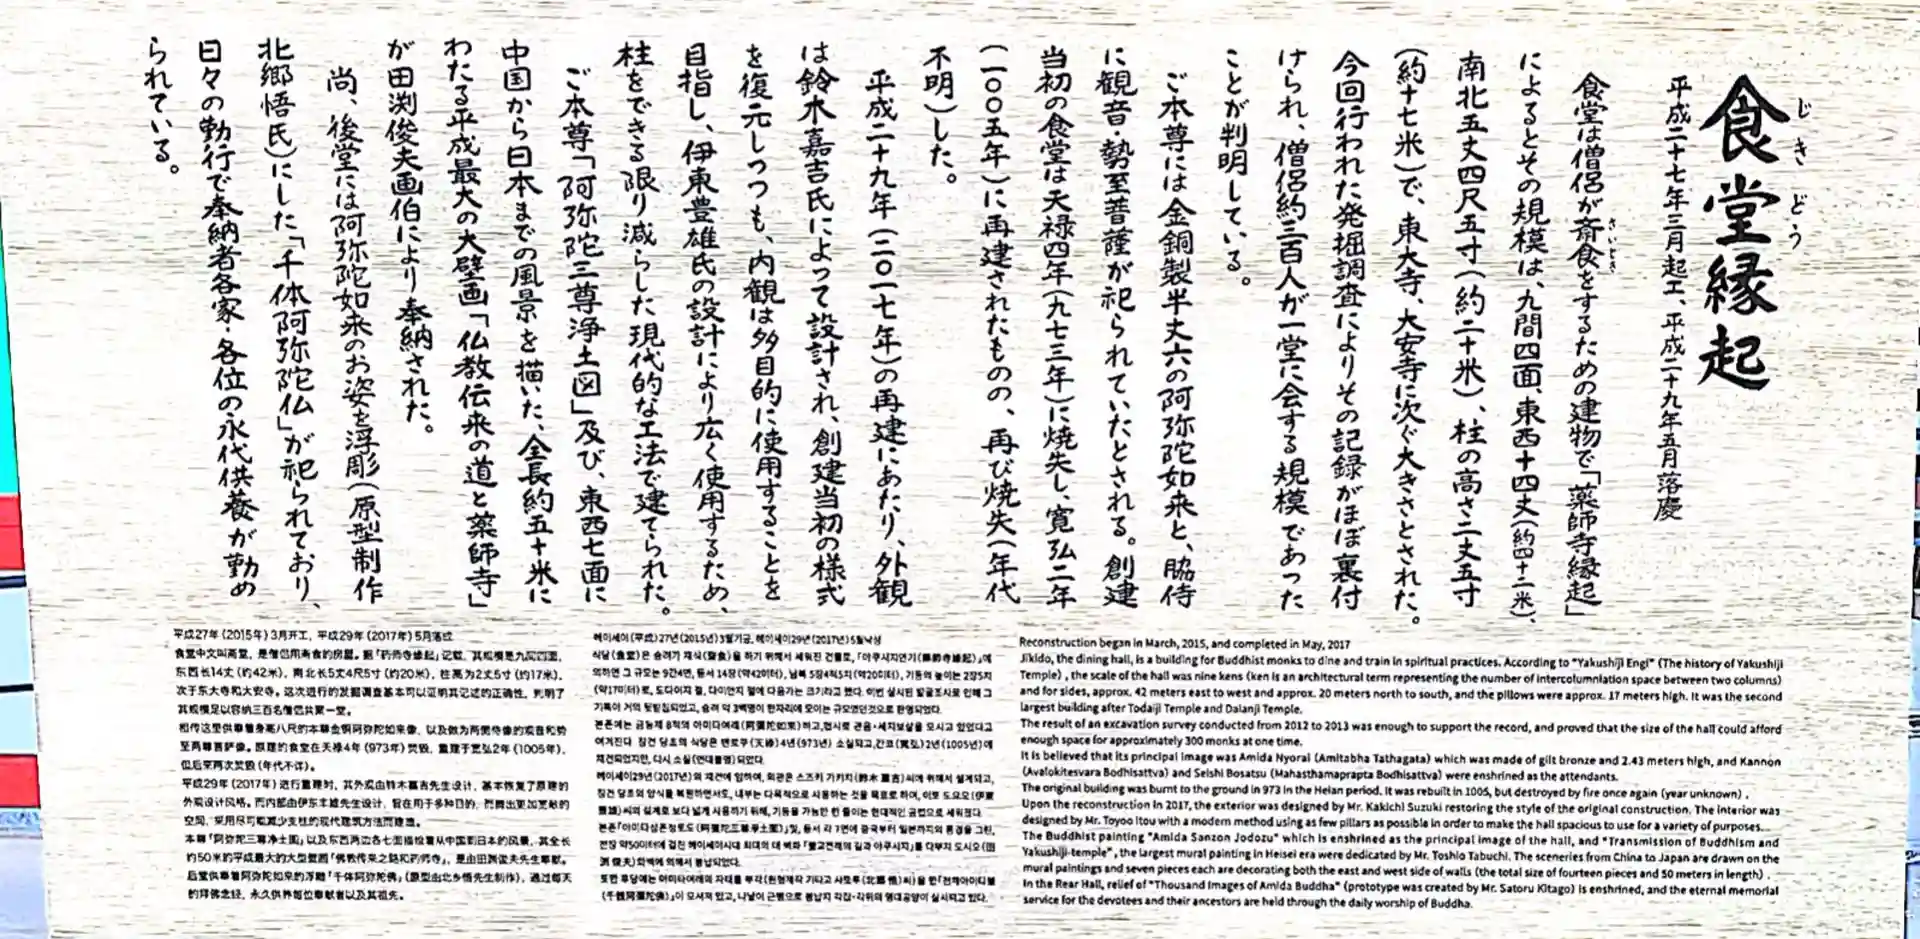 食堂縁起
じきどう
平成二十七年三月起工、平成二十九年五月落慶
食堂は僧侶が斎食をするための建物で「薬師寺縁起」
さいじき
によるとその規模は、九間四面、東西十四丈(約四十二米)、
南北五丈四尺五寸(約二十米)、柱の高さ二丈五寸
(約十七米)で、東大寺、大安寺に次ぐ大きさとされた。
今回行われた発掘調査によりその記録がほぼ裏付
けられ、僧侶約三百人が一堂に会する規模であった
ことが判明している。
ご本尊には金銅製半丈六の阿弥陀如来と、脇侍
に観音・勢至菩薩が祀られていたとされる。創建
当初の食堂は天禄四年(九七三年)に焼失し、寛弘二年
(一〇〇五年)に再建されたものの、再び焼失(年代
不明)した。
平成二十九年(二〇一七年)の再建にあたり、外観
は鈴木嘉吉氏によって設計され、創建当初の様式
を復元しつつも、内観は多目的に使用することを
目指し、伊東豊雄氏の設計により広く使用するため、
柱をできる限り減らした現代的な工法で建てられた。
ご本尊「阿弥陀三尊浄土図」及び、東西七面に
中国から日本までの風景を描いた、全長約五十米に
わたる平成最大の大壁画「仏教伝来の道と薬師寺」
が田渕俊夫画伯により奉納された。
尚、後堂には阿弥陀如来のお姿を浮彫(原型制作
北郷悟氏)にした「千体阿弥陀仏」が祀られており、
日々の勤行で奉納者各家・各位の永代供養が勤め
られている。
平成27年(2015年)3月开工,平成29年(2017年)5月落成
食堂中文叫斋堂,是僧侣用斋食的房屋。据「药师寺缘起」记载,其规模是九间四面,
东西长14丈(约42米),南北长5丈4尺5寸(约20米),柱高为2丈5寸(约17米),
次于东大寺和大安寺。这次进行的发掘调查基本可以证明其记述的正确性,判明了
其规模足以容纳三百名僧侣共聚一堂。
相传这里供奉着身高八尺的本尊金铜阿弥陀如来像,以及做为两侧侍像的观音和势
至两尊菩萨像。原建的食堂在天禄4年(973年)焚毁,重建于宽弘2年(1005年),
但后来再次焚毁(年代不详)。
平成29年(2017年)进行重建时,其外观由铃木嘉吉先生设计,基本恢复了原建的
外观设计风格。而内部由伊东丰雄先生设计,旨在用于多种目的,而腾出更加宽敞的
空间,采用尽可能减少支柱的现代建筑方法而建造。
本尊「阿弥陀三尊净土图」以及东西两边各七面描绘着从中国到日本的风景,其全长
约50米的平成最大的大型壁画「佛教传来之路和药师寺」,是由田渊俊夫先生奉献。
后堂供奉着阿弥陀如来的浮雕「千体阿弥陀佛」(原型由北乡悟先生制作),通过每天
的拜佛念经,永久供养每位奉献者以及其祖先。
헤이세이(平成)27년(2015년)3월기공, 헤이세이29년(2017년)5월낙성
식당(食堂)은 승려가 재식(斎食)을 하기 위해서 세워진 건물로,「야쿠시지연기(薬師寺縁起)」에
의하면 그 규모는 9간4면, 동서 14장(약42미터), 남북 5장4척5치(약20미터), 기둥의 높이는 2장5치
(약17미터)로, 도다이지 절, 다이안지 절에 다음가는 크기라고 했다. 이번 실시된 발굴조사로 인해 그
기록이 거의 뒷받침되었고, 승려 약 3백명이 한자리에 모이는 규모였던것으로 판명되었다.
본존에는 금동제 8척의 아미다여래(阿彌陀如来)하고,협시로 관음・세지보살을 모시고 있었다고
여겨진다 창건 당초의 식당은 텐로쿠(天禄)4년(973년) 소실되고,간코(寛弘)2년(1005년)에
재건되었지만, 다시 소실(연대불명)되었다.
헤이세이29년(2017년)의 재건에 임하여, 외관은 스즈키 가키치(鈴木 嘉吉)씨에 위해서 설계되고,
창건 당초의 양식을 복원하면서도, 내부는 다목적으로 사용하는 것을 목표로 하여, 이토 도요오(伊東
豊雄)씨의 설계로 보다 넓게 사용하기 위해, 기둥을 가능한 한 줄이는 현대적인 공법으로 세워졌다.
본존「아미다삼존정토도(阿彌陀三尊浄土図)」및, 동서 각 7면에 중국부터 일본까지의 풍경을 그린,
전장 약50미터에 걸친 헤이세이시대 최대의 대 벽화「불교전래의 길과 야쿠시지」를 다부치 도시오(田
渕 俊夫)화백에 의해서 봉납되었다.
또한 후당에는 아미타여래의 자태를 부각(원형제작 기타고 사토루(北郷 悟)씨)을 한「천체아미타불
(千體阿彌陀佛)」이 모셔져 있고, 나날이 근행으로 봉납자 각집・각위의 영대공양이 실시되고 있다.
Reconstruction began in March, 2015, and completed in May, 2017
Jikido, the dining hall, is a building for Buddhist monks to dine and train in spiritual practices. According to "Yakushiji Engi" (The history of Yakushiji
Temple) , the scale of the hall was nine kens (ken is an architectural term representing the number of intercolumniation space between two columns)
and for sides, approx. 42 meters east to west and approx. 20 meters north to south, and the pillows were approx. 17 meters high. It was the second
largest building after Todaiji Temple and Daianji Temple.
The result of an excavation survey conducted from 2012 to 2013 was enough to support the record, and proved that the size of the hall could afford
enough space for approximately 300 monks at one time.
It is believed that its principal image was Amida Nyorai (Amitabha Tathagata) which was made of gilt bronze and 2.43 meters high, and Kannon
(Avalokitesvara Bodhisattva) and Seishi Bosatsu (Mahasthamaprapta Bodhisattva) were enshrined as the attendants.
The original building was burnt to the ground in 973 in the Heian period. It was rebuilt in 1005, but destroyed by fire once again (year unknown) .
Upon the reconstruction in 2017, the exterior was designed by Mr. Kakichi Suzuki restoring the style of the original construction. The interior was
designed by Mr. Toyoo Itou with a modern method using as few pillars as possible in order to make the hall spacious to use for a variety of purposes.
The Buddhist painting "Amida Sanzon Jodozu" which is enshrined as the principal image of the hall, and "Transmission of Buddhism and
Yakushiji-temple" , the largest mural painting in Heisei era were dedicated by Mr. Toshio Tabuchi. The sceneries from China to Japan are drawn on the
mural paintings and seven pieces each are decorating both the east and west side of walls (the total size of fourteen pieces and 50 meters in length) .
In the Rear Hall, relief of "Thousand Images of Amida Buddha" (prototype was created by Mr. Satoru Kitago) is enshrined, and the eternal memorial
service for the devotees and their ancestors are held through the daily worship of Buddha.